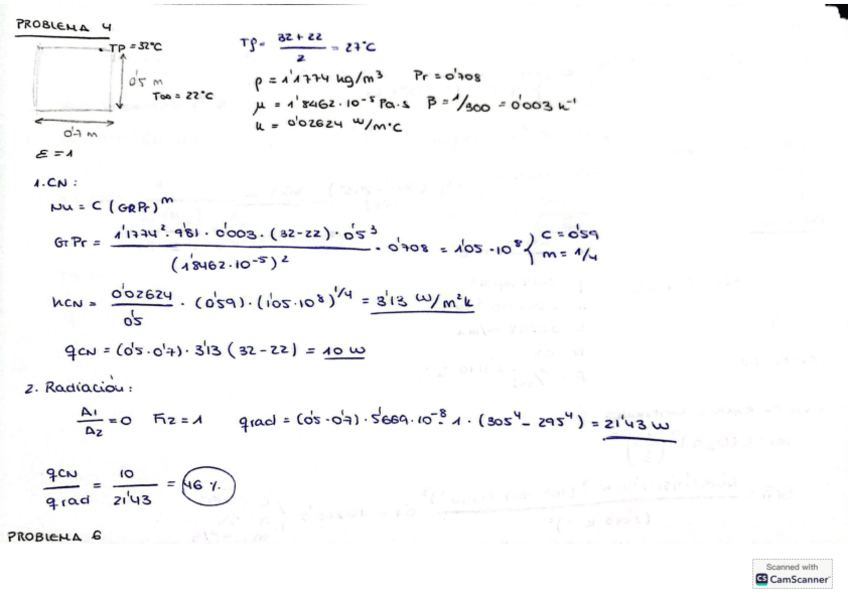 PROBLEMA 4
TP = 32°C
0'5 m
T∞ = 22°C
0'7 m
ε = 1
Tf = (32 + 22)/2 = 27°C
ρ = 1'1774 kg/m³ Pr = 0'708
μ = 1'8462·10⁻⁵ Pa·s β = 1/300 = 0'003 k⁻¹
k = 0'02624 W/m°C
1. CN :
Nu = C (GrPr)^m
GrPr = (1'1774² · 9'81 · 0'003 · (32-22) · 0'5³)/((1'8462·10⁻⁵)²) · 0'708 = 1'05·10⁸ } C = 0'59 m = 1/4
hCN = 0'02624/0'5 · (0'59) · (1'05·10⁸)^1/4 = 3'13 W/m²k
qCN = (0'5·0'7) · 3'13 (32-22) = 10 W
2. Radiación :
A1/A2 = 0 F12 = 1 qrad = (0'5·0'7) · 5'669·10⁻⁸ · 1 · (305⁴ - 295⁴) = 21'43 W
qCN/qrad = 10/21'43 = 46 %
PROBLEMA 6
Scanned with
CS CamScanner